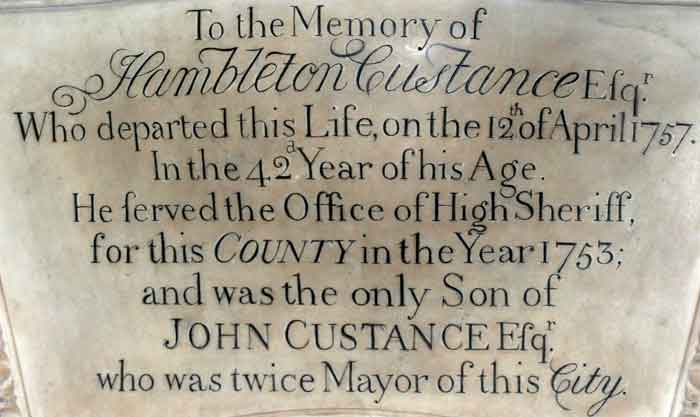 To the Memory of
Hambleton Custance Eſqr.
Who departed this Life, on the 12th of April 1757.
In the 42d Year of his Age.
He ſerved the Office of High Sheriff,
for this COUNTY in the Year 1753;
and was the only Son of
JOHN CUSTANCE Eſqr.
who was twice Mayor of this City.